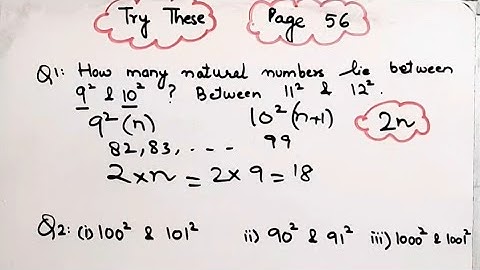 Try These Page 56
Q1: How many natural numbers lie between
9² & 10² ? Between 11² & 12².
9²(n) 10²(n+1) 2n
82, 83, - - - - 99
2×n = 2×9 = 18
Q2: (i) 100² & 101² ii) 90² & 91² iii) 1000² & 1001²